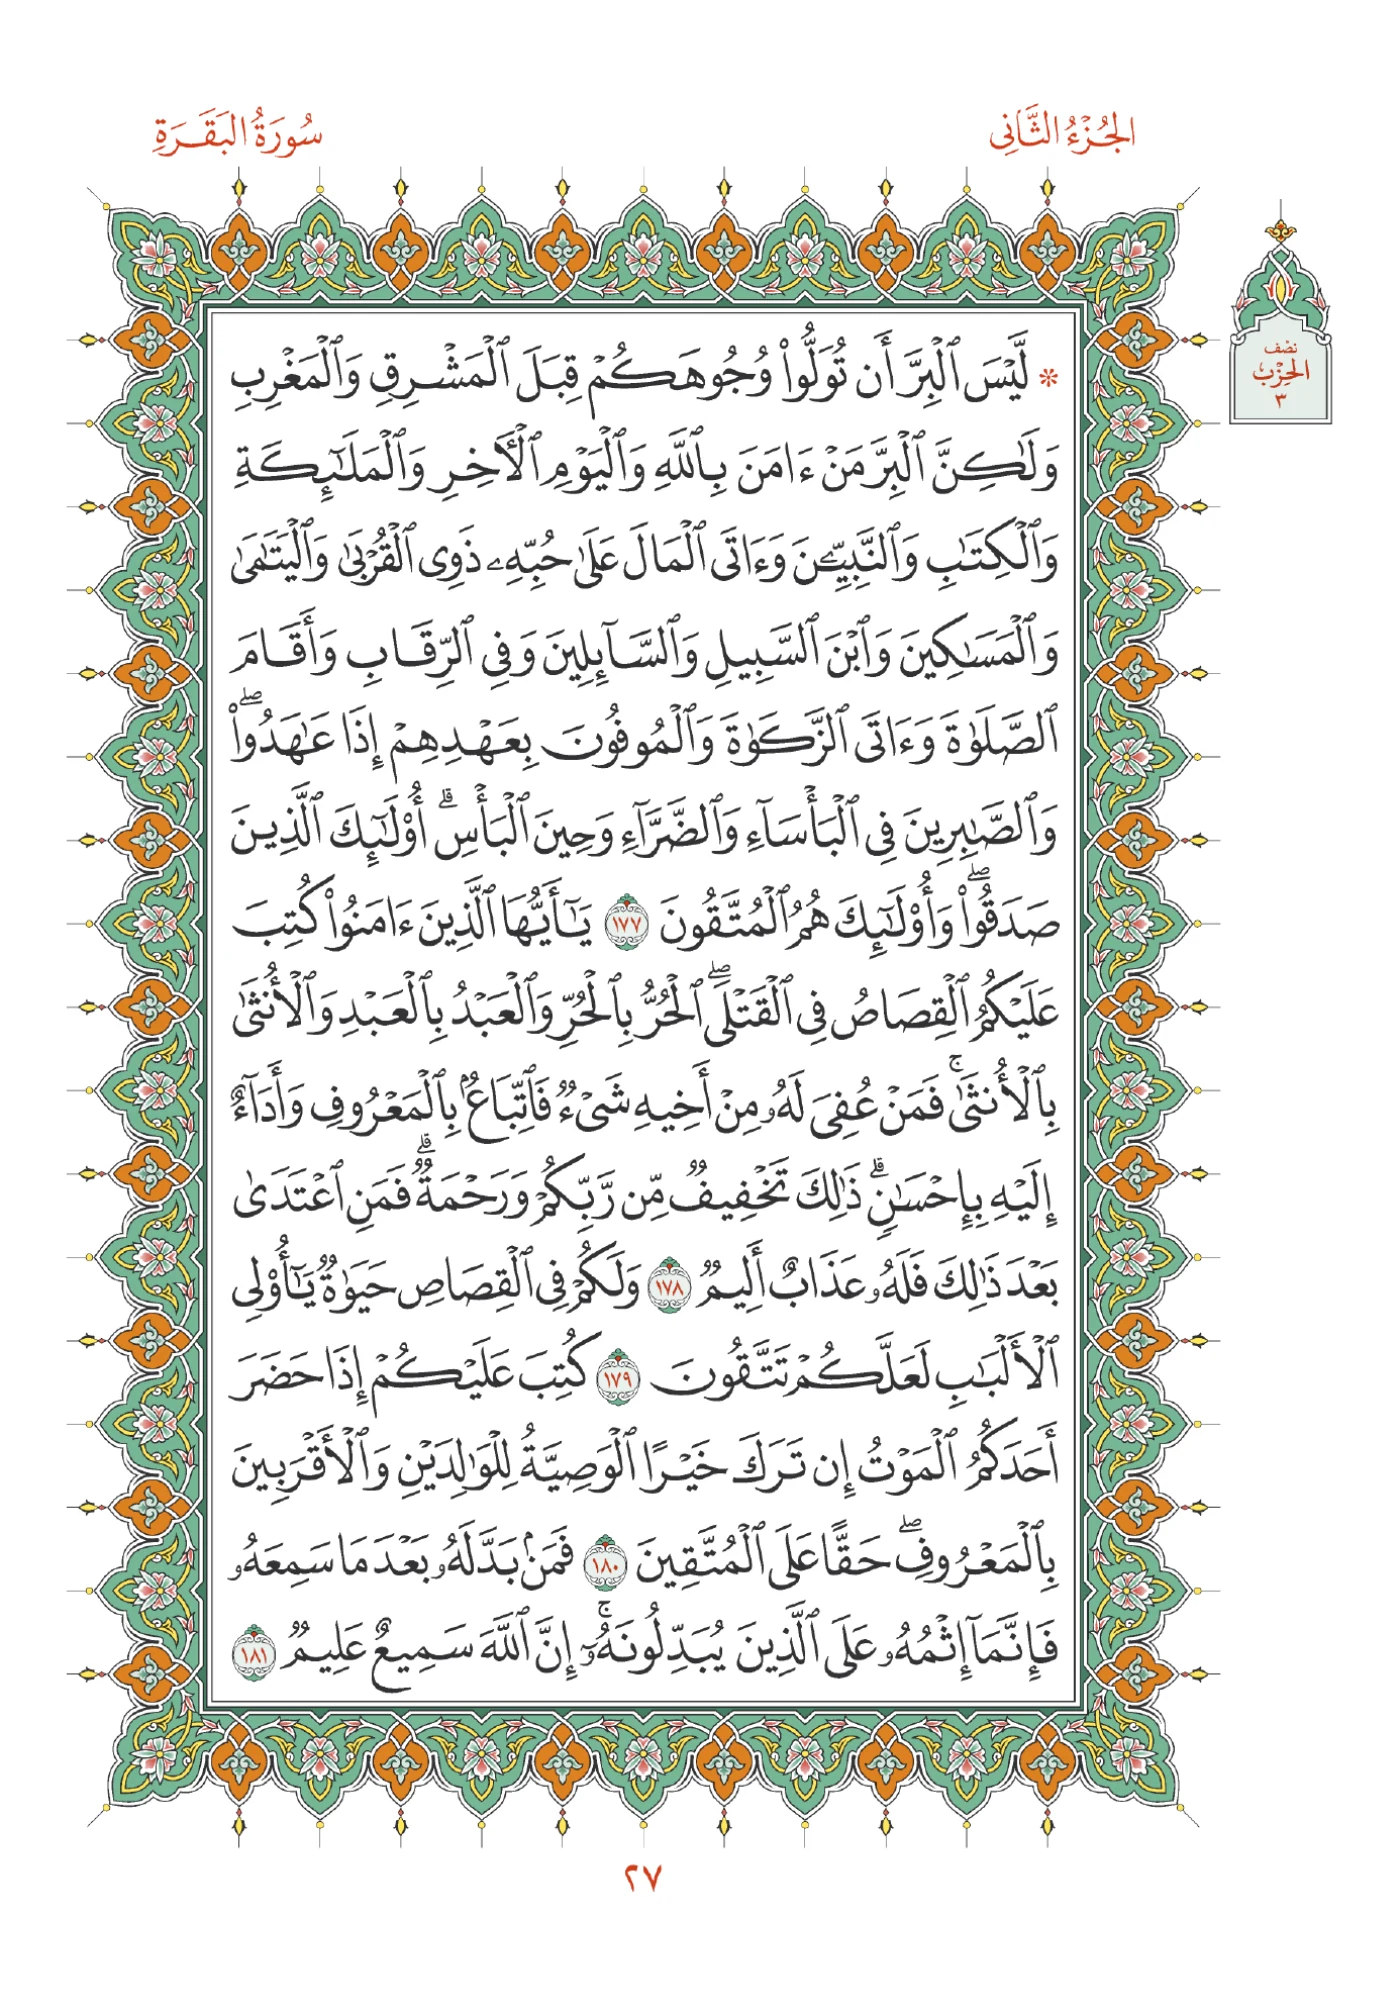 الجُزْءُ الثَّانِي
سُورَةُ البَقَرَةِ
نصْف
الحِزْب
٣
* لَّيْسَ ٱلْبِرَّ أَن تُوَلُّوا۟ وُجُوهَكُمْ قِبَلَ ٱلْمَشْرِقِ وَٱلْمَغْرِبِ
وَلَٰكِنَّ ٱلْبِرَّ مَنْ ءَامَنَ بِٱللَّهِ وَٱلْيَوْمِ ٱلْأَخِرِ وَٱلْمَلَٰٓئِكَةِ
وَٱلْكِتَٰبِ وَٱلنَّبِيِّـۧنَ وَءَاتَى ٱلْمَالَ عَلَىٰ حُبِّهِۦ ذَوِى ٱلْقُرْبَىٰ وَٱلْيَتَٰمَىٰ
وَٱلْمَسَٰكِينَ وَٱبْنَ ٱلسَّبِيلِ وَٱلسَّآئِلِينَ وَفِى ٱلرِّقَابِ وَأَقَامَ
ٱلصَّلَوٰةَ وَءَاتَى ٱلزَّكَوٰةَ وَٱلْمُوفُونَ بِعَهْدِهِمْ إِذَا عَٰهَدُوا۟ۖ
وَٱلصَّٰبِرِينَ فِى ٱلْبَأْسَآءِ وَٱلضَّرَّآءِ وَحِينَ ٱلْبَأْسِۗ أُو۟لَٰٓئِكَ ٱلَّذِينَ
صَدَقُوا۟ۖ وَأُو۟لَٰٓئِكَ هُمُ ٱلْمُتَّقُونَ ١٧٧ يَٰٓأَيُّهَا ٱلَّذِينَ ءَامَنُوا۟ كُتِبَ
عَلَيْكُمُ ٱلْقِصَاصُ فِى ٱلْقَتْلَىۖ ٱلْحُرُّ بِٱلْحُرِّ وَٱلْعَبْدُ بِٱلْعَبْدِ وَٱلْأُنثَىٰ
بِٱلْأُنثَىٰۚ فَمَنْ عُفِىَ لَهُۥ مِنْ أَخِيهِ شَىْءٌ فَٱتِّبَاعٌۢ بِٱلْمَعْرُوفِ وَأَدَآءٌ
إِلَيْهِ بِإِحْسَٰنٍۗ ذَٰلِكَ تَخْفِيفٌ مِّن رَّبِّكُمْ وَرَحْمَةٌۗ فَمَنِ ٱعْتَدَىٰ
بَعْدَ ذَٰلِكَ فَلَهُۥ عَذَابٌ أَلِيمٌ ١٧٨ وَلَكُمْ فِى ٱلْقِصَاصِ حَيَوٰةٌ يَٰٓأُو۟لِى
ٱلْأَلْبَٰبِ لَعَلَّكُمْ تَتَّقُونَ ١٧٩ كُتِبَ عَلَيْكُمْ إِذَا حَضَرَ
أَحَدَكُمُ ٱلْمَوْتُ إِن تَرَكَ خَيْرًا ٱلْوَصِيَّةُ لِلْوَٰلِدَيْنِ وَٱلْأَقْرَبِينَ
بِٱلْمَعْرُوفِۖ حَقًّا عَلَى ٱلْمُتَّقِينَ ١٨٠ فَمَنۢ بَدَّلَهُۥ بَعْدَ مَا سَمِعَهُۥ
فَإِنَّمَآ إِثْمُهُۥ عَلَى ٱلَّذِينَ يُبَدِّلُونَهُۥٓۚ إِنَّ ٱللَّهَ سَمِيعٌ عَلِيمٌ ١٨١
٢٧